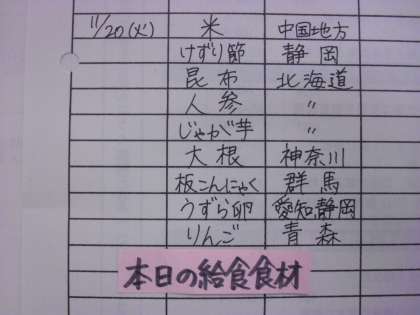 11/20(火) 米 中国地方
けずり節 静岡
昆布 北海道
人参 〃
じゃが芋 〃
大根 神奈川
板こんにゃく 群馬
うずら卵 愛知静岡
りんご 青森
本日の給食食材